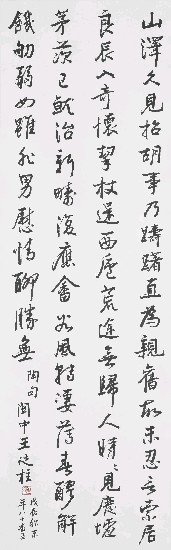 山澤久見招胡事乃躊躇直為親舊故未忍言索居
良辰入奇懷挈杖還西廬荒途無歸人時〻見廢墟
茅茨已就治新疇復應畬谷風轉淒薄春醪解
饑劬弱女雖非男慰情聊勝無
陶句 閩中王
戊辰初冬
年八十有